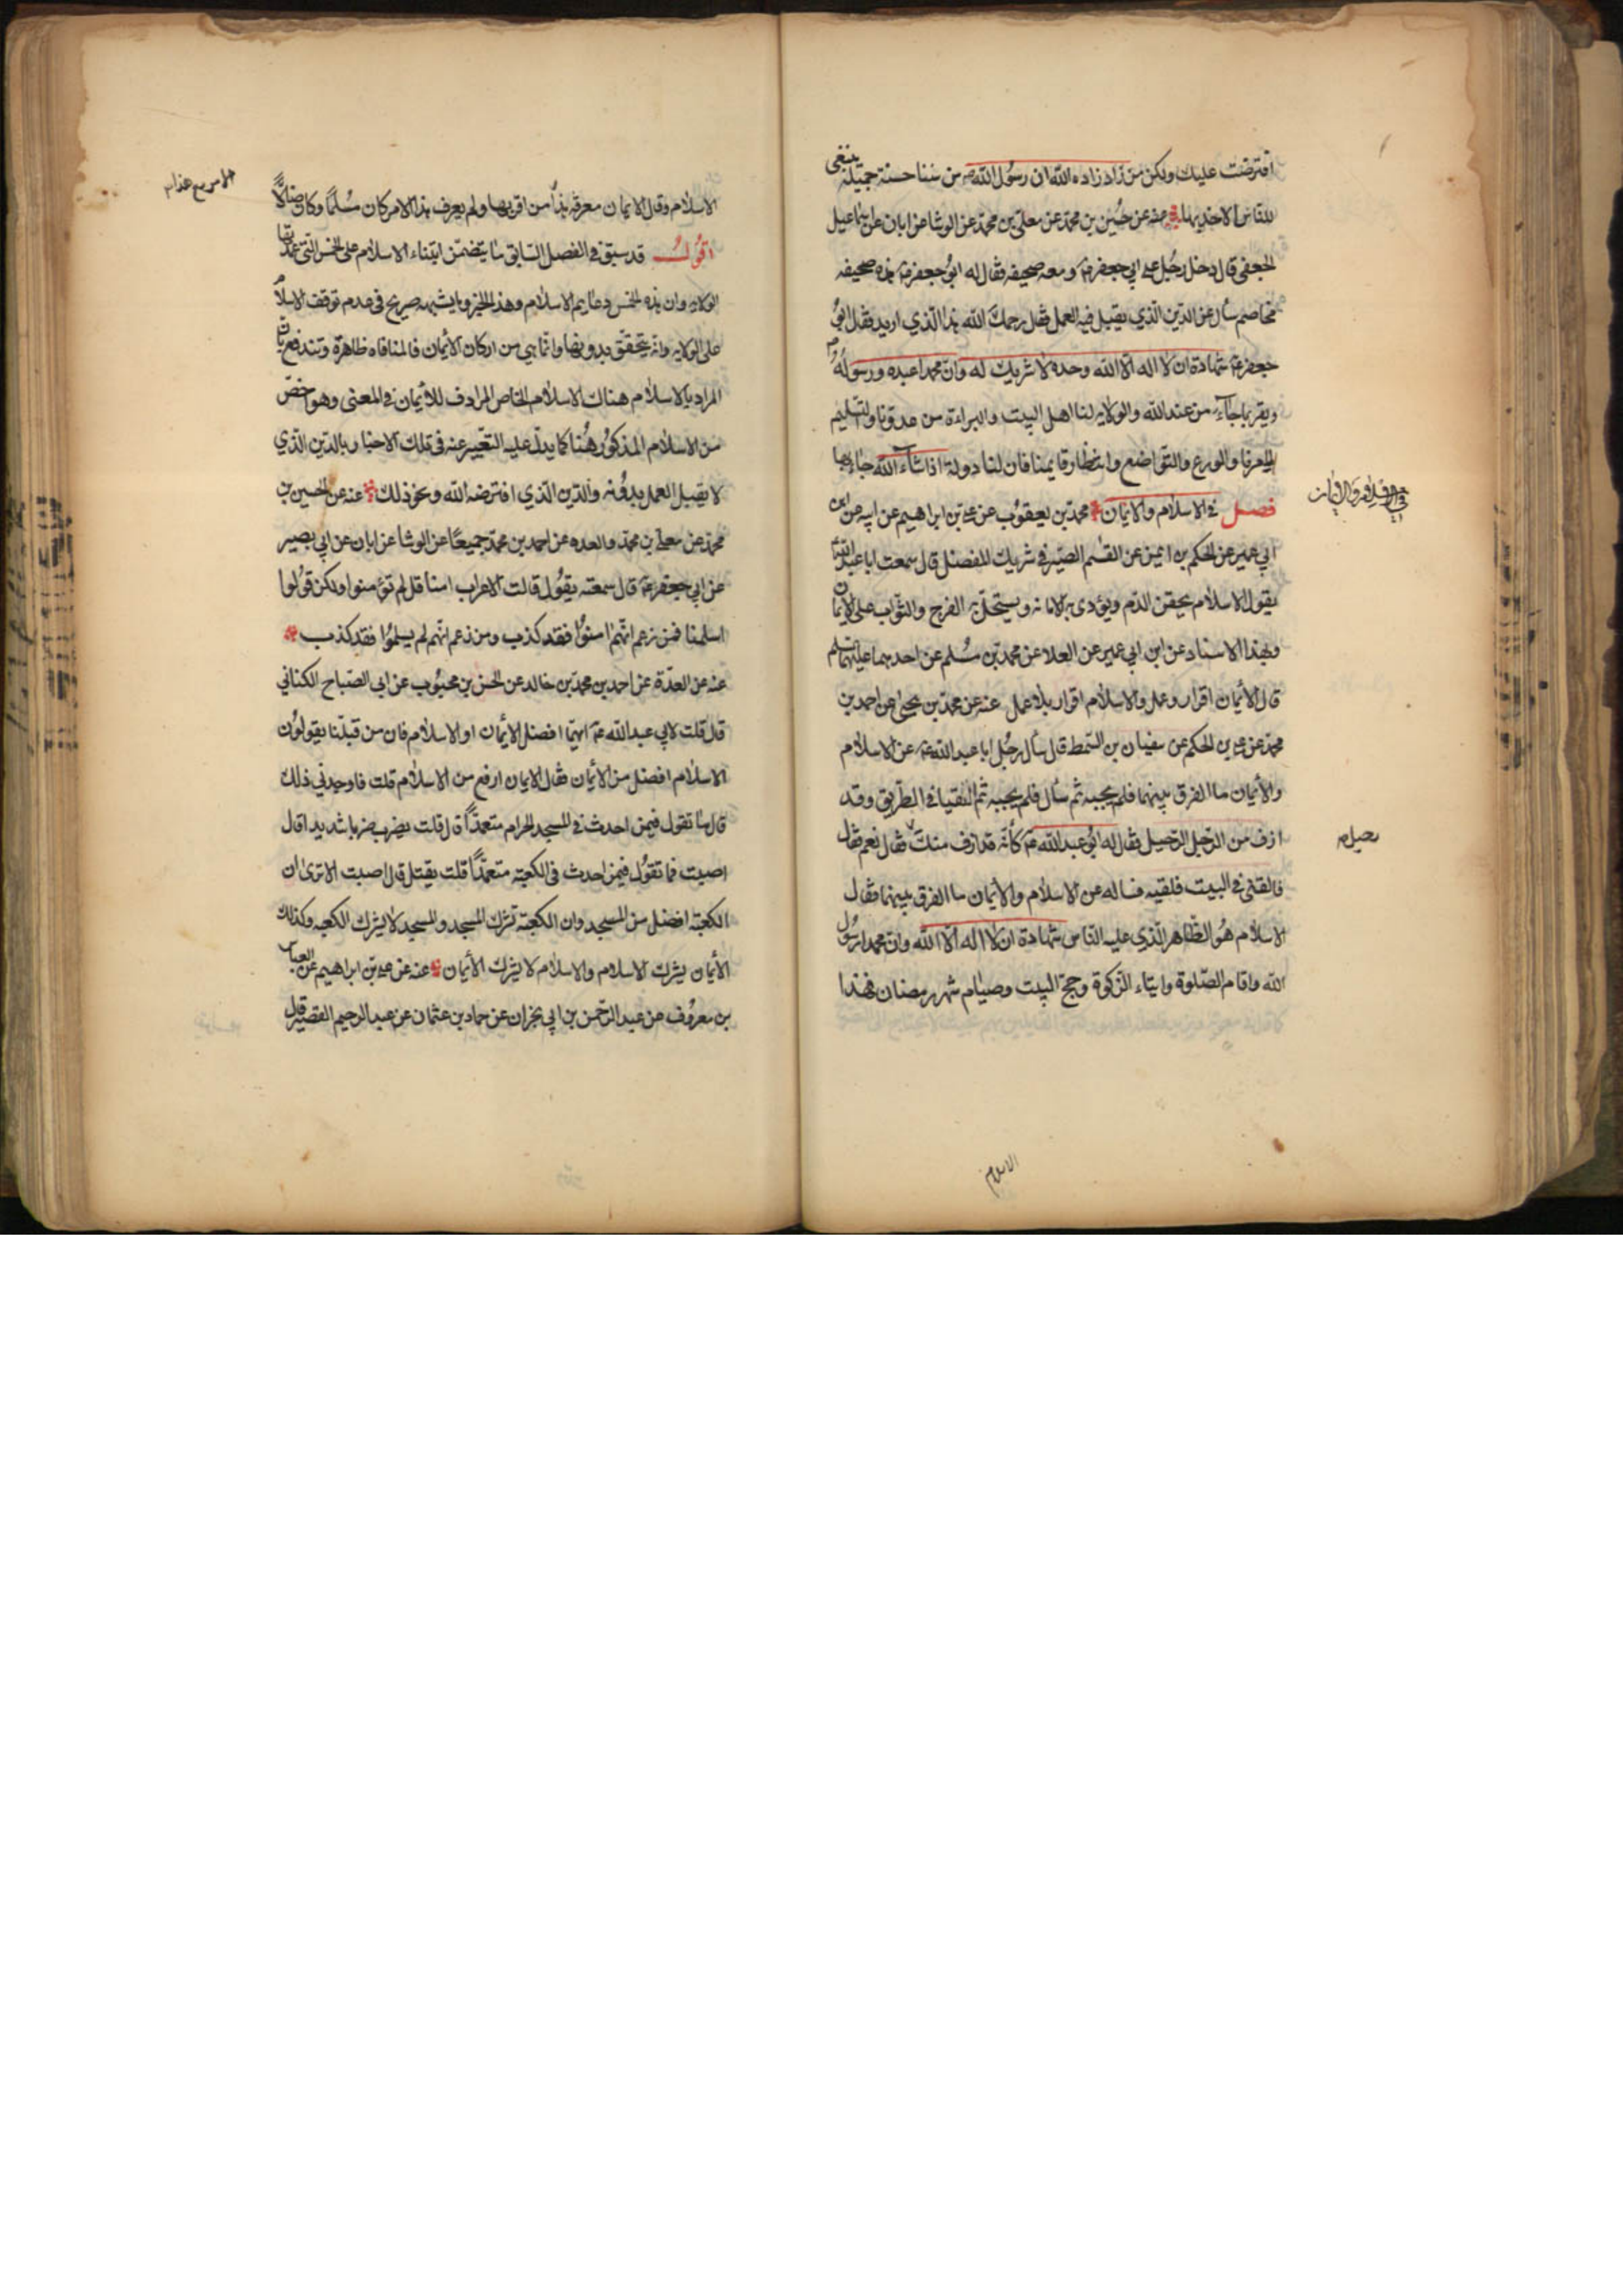 افترضت عليك ولكن من زاد زاده الله ان رسول الله ص من سننا حسنة جميلة ينبغى
للناس الاخذ بها عنه عن حسين بن محمد عن معلى بن محمد عن الوشا عن ابان عن اسماعيل
الجعفى قال دخل رجل على ابي جعفر ع و معه صحيفه فقال له ابو جعفر ع هذه صحيفه
مخاصم سأل عن الدين الذي يقبل فيه العمل فقال رحمك الله هذا الذي اريد فقال ابو
جعفر ع شهادة ان لا اله الا الله وحده لا شريك له وان محمدا عبده ورسوله
ويقر بما جاء من عند الله والولايه لنا اهل البيت والبراءة من عدونا والتسليم
لامرنا والورع والتواضع وانتظار قايمنا فان لنا دولة اذا شاء الله جاء بها
فصل في الاسلام والايمان محمد بن يعقوب عن علي بن ابراهيم عن ابيه عن ابن
ابي عمير عن الحكم بن ايمن عن القسم الصيرفي شريك المفضل قال سمعت ابا عبد الله
يقول الاسلام يحقن الدم ويؤدى به الامانه ويستحل به الفرج والثواب على الايمان
وبهذا الاسناد عن ابن ابي عمير عن العلا عن محمد بن مسلم عن احدهما عليهما السلم
قال الأيمان اقرار وعمل والاسلام اقرار بلا عمل عنه عن محمد بن يحيى عن احمد بن
محمد عن علي بن الحكم عن سفيان بن السمط قال سأل رجل ابا عبد الله ع عن الاسلام
والأيمان ما الفرق بينهما فلم يجبه ثم سأل فلم يجبه ثم التقيا في الطريق وقد
ازف من الرجل الرحيل فقال له ابو عبد الله ع كأنه قد ازف منك رحيل فقال نعم فقال
فالقنى في البيت فلقيه فساله عن الاسلام والايمان ما الفرق بينهما فقال
الاسلام هو الظاهر الذي عليه الناس شهادة ان لا اله الا الله وان محمدا رسول
الله واقام الصلوة وايتاء الزكوة وحج البيت وصيام شهر رمضان فهذا
الاسلام
الاسلام وقال الايمان معرفة هذا من اقر بها ولم يعرف هذا الامر كان مسلما وكان ضالاً
الامر مع هذا م
اقول قد سبق في الفصل السابق ما يتضمن ابتناء الاسلام على الخمس التي
الولايه وان هذه الخمس دعايم الاسلام وهذا الخبر وما يشبهه صريح في عدم توقف الاسلام
على الولايه وانه يتحقق بدونها وانما هي من اركان الأيمان فالمنافاه ظاهرة وتندفع بان
المراد بالاسلام هناك الاسلام الخاص المرادف للأيمان في المعنى وهو اخص
من الاسلام المذكور هنا كما يدل عليه التعبير عنه في تلك الاخبار بالدين الذي
لا يقبل العمل بدونه والدين الذي افترضه الله ونحو ذلك عنه عن الحسين بن
محمد عن معلى بن محمد والعده عن احمد بن محمد جميعًا عن الوشا عن ابان عن ابي بصير
عن ابي جعفر ع قال سمعته يقول قالت الاعراب امنا قل لم تؤمنوا ولكن قولوا
اسلمنا فمن زعم انهم امنوا فقد كذب ومن زعم انهم لم يسلموا فقد كذب
عنه عن العدة عن احمد بن محمد بن خالد عن الحسن بن محبوب عن ابي الصباح الكناني
قال قلت لابي عبد الله ع ايهما افضل الأيمان او الاسلام فان من قبلنا يقولون
الاسلام افضل من الأيمان فقال الايمان ارفع من الاسلام قلت فاوجدني ذلك
قال ما تقول فيمن احدث في المسجد الحرام متعمدًا قال قلت يضرب ضربا شديدا قال
اصبت فما تقول فيمن احدث في الكعبة متعمدًا قلت يقتل قال اصبت الا ترى ان
الكعبة افضل من المسجد وان الكعبة تشرك المسجد والمسجد لا يشرك الكعبه وكذلك
الأيمان يشرك الاسلام والاسلام لا يشرك الأيمان عنه عن علي بن ابراهيم عن العباس
بن معروف عن عبد الرحمن بن ابي نجران عن حماد بن عثمان عن عبد الرحيم القصير قال